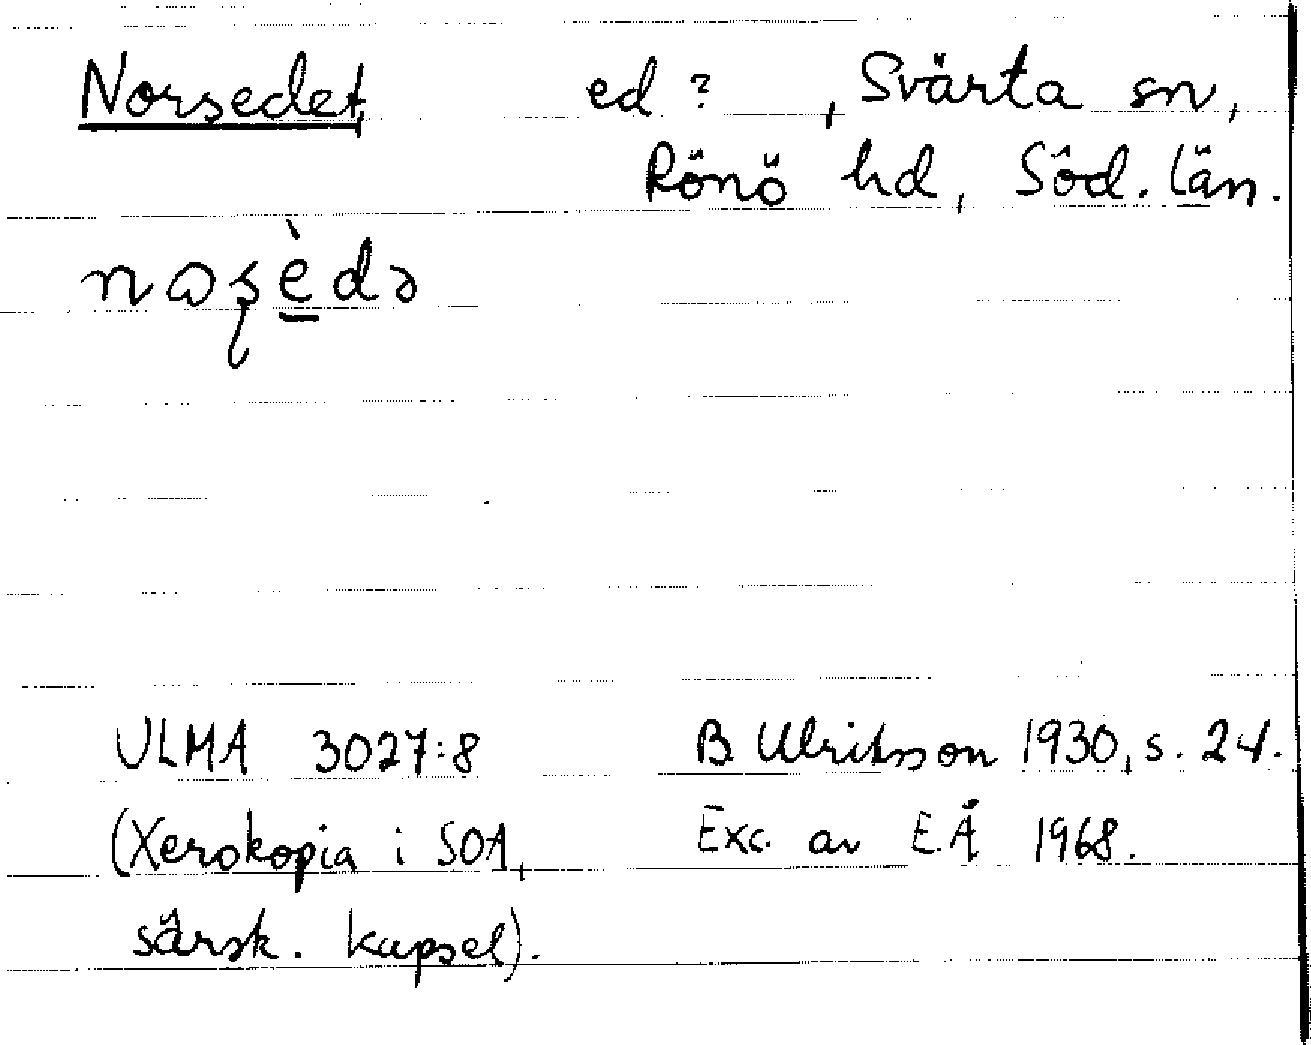 Norsedet ed? , Svärta sn,
Rönö hd, Söd. län.
nɷʂèdə
ULMA 3027:8 B Ulritsson 1930, s. 24.
(Xerokopia i SOA, Exc. av E Å 1968.
särsk. kapsel).